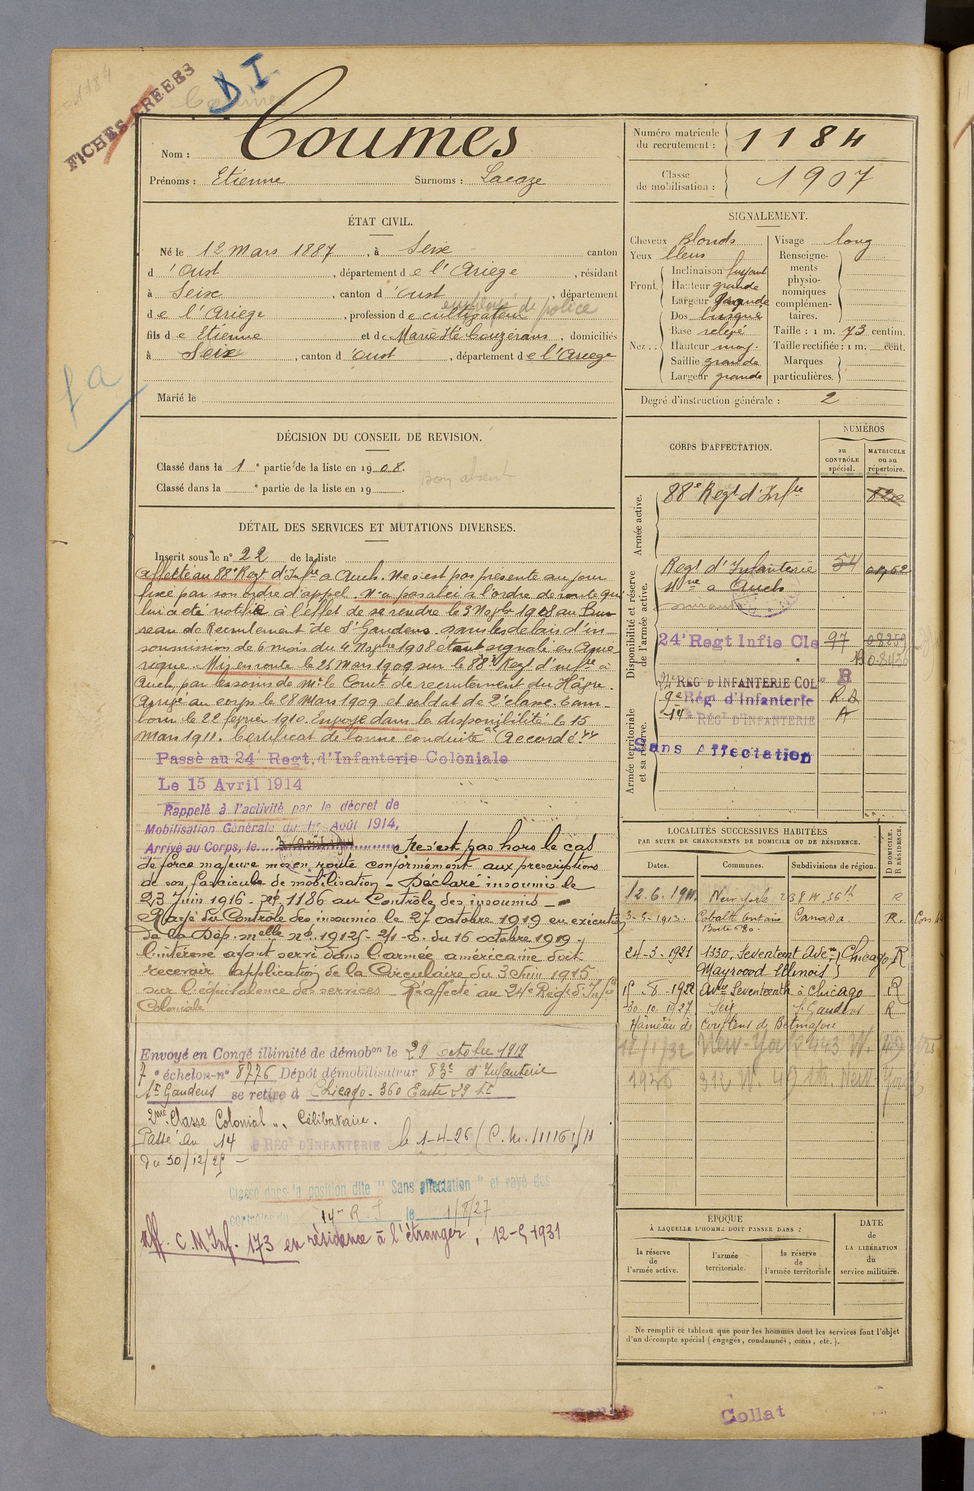 1184
FICHES CREEES
D I
Nom : Coumes
Prénoms : Etienne Surnoms : Lacaze
Numéro matricule du recrutement : 1184
Classe de mobilisation : 1907
ÉTAT CIVIL.
Né le 12 Mars 1887, à Seix canton
d 'Oust, département de l'Ariège, résidant
à Seix, canton d'Oust, département
de l'Ariège, profession de cultivateur
employé de police
fils de Etienne et de Marie Ste Couzérans, domiciliés
à Seix, canton d'Oust, département de l'Ariège
Marié le
SIGNALEMENT.
Cheveux Blonds
Yeux bleus
Front. Inclinaison fuyant
Hauteur grande
Largeur grande
Nez : Dos busqué
Base relevé
Hauteur moy.
Saillie grande
Largeur grande
Visage long
Renseignements physionomiques complémentaires.
Taille : 1 m. 73 centim.
Taille rectifiée : 1 m. cent.
Marques particulières.
Degré d'instruction générale : 2
DÉCISION DU CONSEIL DE REVISION.
Classé dans la 1e partie de la liste en 1908.
Classé dans la e partie de la liste en 19
Bon absent
DÉTAIL DES SERVICES ET MUTATIONS DIVERSES.
Inscrit sous le n° 22 de la liste
Affecté au 88e Regt d'Infrie à Auch. Ne s'est pas présenté au jour
fixé par son ordre d'appel. N'a pas obéi à l'ordre de route qui
lui a été notifié à l'effet de se rendre le 3 9bre 1908 au Bu-
reau de Recrutement de St Gaudens, dans les délais d'in-
soumission de 6 mois du 4 9bre 1908 étant signalé en Amé-
rique. Mis en route le 25 Mars 1909 sur le 88e Regt d'infie à
Auch par les soins de Mr le Comt de recrutement du Hâvre.
Arrivé au corps le 28 Mars 1909 et soldat de 2e classe. Tam-
bour le 22 février 1910. Envoyé dans la disponibilité le 15
Mars 1911. Certificat de bonne conduite "Accordé".
Passé au 24e Regt. d'Infanterie Coloniale
Le 15 Avril 1914
Rappelé à l'activité par le décret de
Mobilisation Générale du 1er Août 1914,
Arrivé au Corps, le Ne s'est pas hors le cas
de force majeure mis en route conformément aux prescriptions
de son fascicule de mobilisation - Déclaré insoumis le
23 Juin 1916 - 1186 au Contrôle des insoumis -
Rayé du Contrôle des insoumis le 27 octobre 1919 en exécution
de la Dép. melle no 19125-2/1-E. du 16 octobre 1919
l'intéressé ayant servi dans l'armée américaine doit
recevoir l'application de la Circulaire du 3 Juin 1915
sur l'équivalence des services - Réaffecté au 24e Régt d'Infie
Coloniale
Envoyé en Congé illimité de démobon le 29 octobre 1919
7e échelon-n° 8776 Dépôt démobilisateur 83e d'Infanterie
St Gaudens se retire à Chicago - 360 Easte 29 St
2me Classe Colonial Célibataire.
Passé au 14 e RÉGt D'INFANTERIE le 1-4-26 (C.M. 11161/11
du 30/12/25
Classé dans la position dite "Sans affectation" et rayé des
contrôles du 14e R I le 1/8/27
Aff. C.M Inf. 173 en résidence à l'étranger, 12-5-1931
CORPS D'AFFECTATION.
NUMÉROS
au CONTRÔLE spécial.
MATRICULE ou au répertoire.
Armée active.
88e Regt d'Infrie
Disponibilité et réserve de l'armée active.
Regt d'Infanterie 54
de à Auch
24e Regt Infie Cle 97
24e REG D'INFANTERIE COLle R
9e Rég d'Infanterie
14e RÉGt D'INFANTERIE
Armée territoriale et sa réserve.
Sans Affectation
LOCALITÉS SUCCESSIVES HABITÉES
PAR SUITE DE CHANGEMENTS DE DOMICILE OU DE RÉSIDENCE.
Dates. Communes. Subdivisions de région. D DOMICILE. R RÉSIDENCE.
12.6.1911 New York 238 W. 56th R
3-5-1913. Cobalt Ontario Canada R.
24-3-1921 1330, Seventeent Avenue Chicago R
Maywood Illinois
15-8-1922 Avue Seventeenth à Chicago R
30.10.1927. Seix St Gaudens R
Hameau de Couflens de Betmajou
12/1/32 New-York 443 W. 49
1936 312 W 49 st. New-York
ÉPOQUE
À LAQUELLE L'HOMME DOIT PASSER DANS :
la réserve de l'armée active.
l'armée territoriale.
la réserve de l'armée territoriale
DATE DE LA LIBÉRATION du service militaire.
Ne remplir ce tableau que pour les hommes dont les services font l'objet
d'un décompte spécial (engagés, condamnés, omis, etc.).
Collat